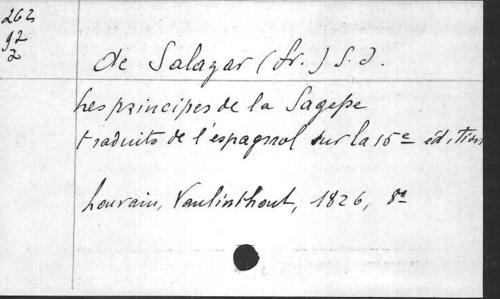 262
92
2
de Salazar (fr.) S.J.
Les principes de la Sagesse
traduits de l'espagnol sur la 15e édition
Louvain, Vanlinthout, 1826, 8°